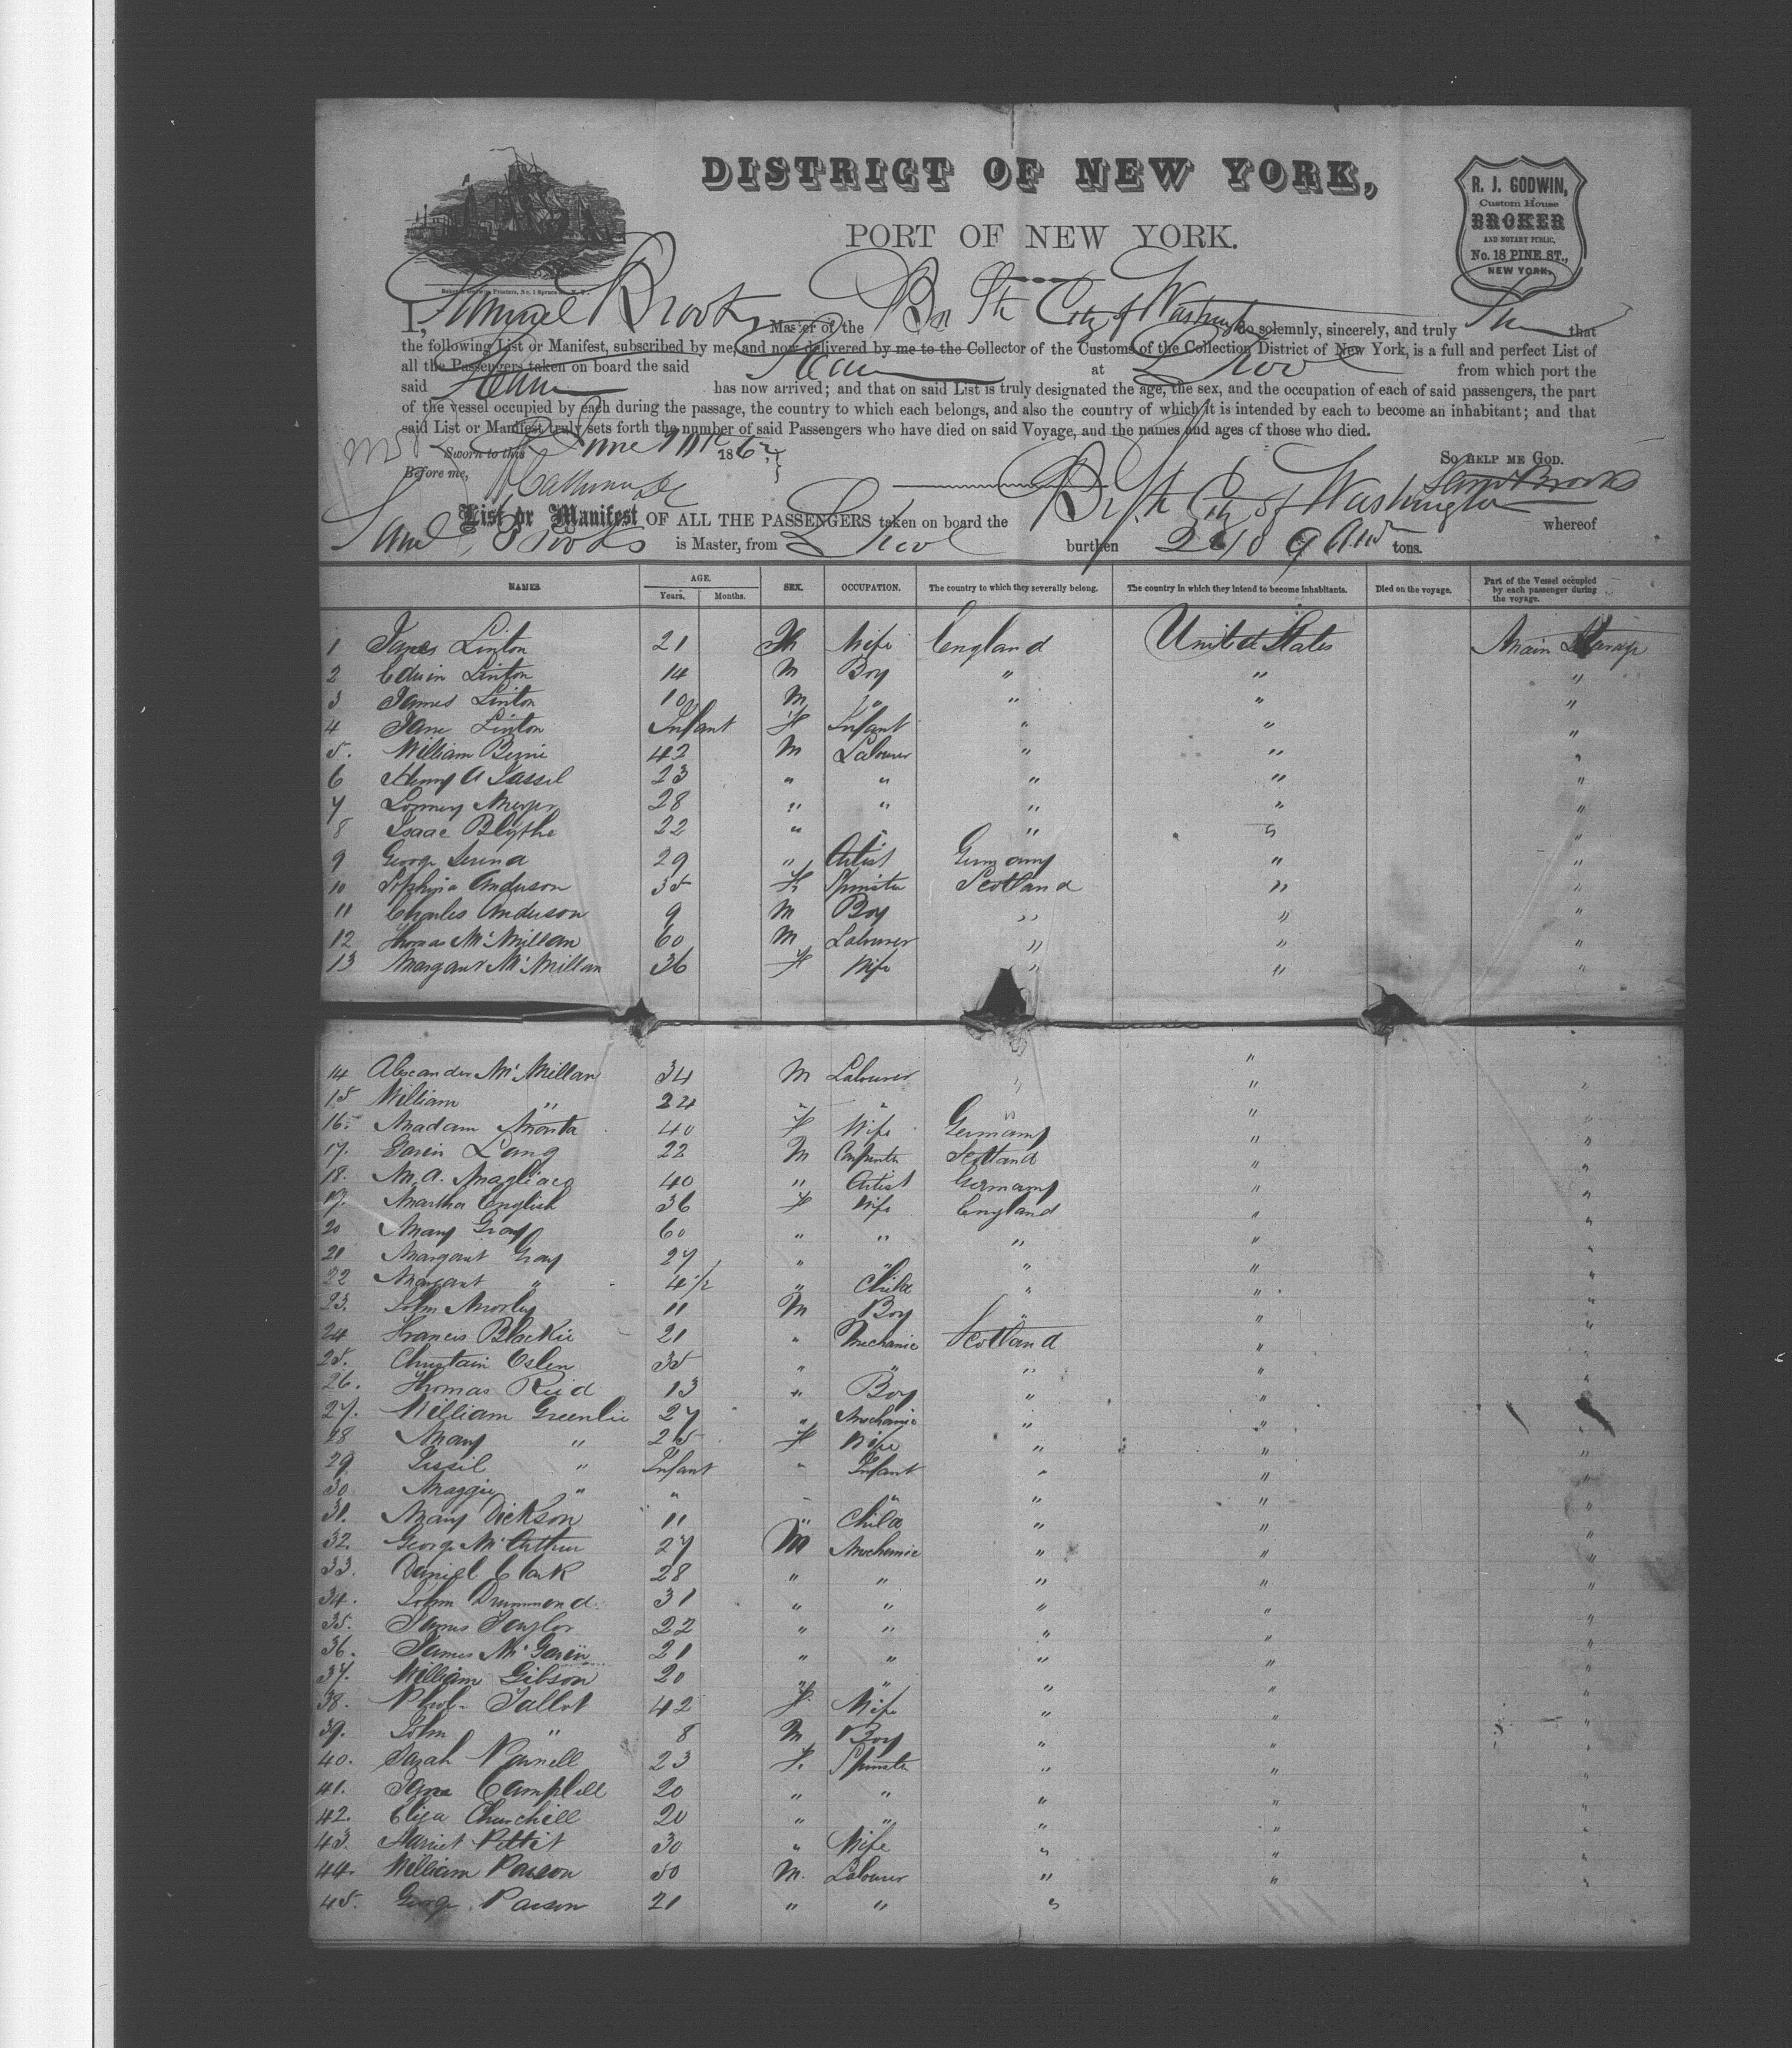 DISTRICT OF NEW YORK,
PORT OF NEW YORK.
R. J. GODWIN,
Custom House
BROKER
AND NOTARY PUBLIC,
No. 18 PINE ST.,
NEW YORK.
Baker & Godwin, Printers, No. 1 Spruce St., N. Y.
I, Samuel Brooks Master of the Br Str City of Washington do solemnly, sincerely, and truly that
the following List or Manifest, subscribed by me, and now delivered by me to the Collector of the Customs of the Collection District of New York, is a full and perfect List of
all the Passengers taken on board the said Steamer at L'pool from which port the
said Steamer has now arrived; and that on said List is truly designated the age, the sex, and the occupation of each of said passengers, the part
of the vessel occupied by each during the passage, the country to which each belongs, and also the country of which it is intended by each to become an inhabitant; and that
said List or Manifest truly sets forth the number of said Passengers who have died on said Voyage, and the names and ages of those who died.
Sworn to this June 186
So help me God.
Before me, Saml Brooks
List or Manifest OF ALL THE PASSENGERS taken on board the Br Str City of Washington whereof
Saml Brooks is Master, from L'pool burthen tons.
NAMES. AGE. Years. Months. SEX. OCCUPATION. The country to which they severally belong. The country in which they intend to become inhabitants. Died on the voyage. Part of the Vessel occupied by each passenger during the voyage.
1 Linton 21 Wife England United States Main Steerage
2 Edwin Linton 14 M Boy " " "
3 James Linton 10 M " " " "
4 Jane Linton Infant F Infant " " "
5. William 42 M Labourer " " "
6 Henry A 23 " " " " "
7 28 " " " " "
8 Isaac Blythe 22 " " " " "
9 George 29 " Artist Germany " "
10 Anderson 35 F Spinster Scotland " "
11 Charles Anderson 9 M Boy " " "
12 Thomas McMillan 60 M Labourer " " "
13 Margaret McMillan 36 F Wife " " "
14 Alexander McMillan 34 M Labourer " " "
15 William " 24 " " " "
16. Madam 40 F Wife Germany " "
17. Lang 22 M Carpenter Scotland " "
18. M. A. 40 " Artist Germany " "
19. Martha English 36 F Wife England " "
20 Mary Gray 60 " " " " "
21 Margaret Gray 27 " " " " "
22 Margaret " 4 1/2 " Child " " "
23. John Morley 11 M Boy " " "
24 Francis Blackie 21 " Mechanic Scotland " "
25. 35 " " " " "
26. Thomas Reid 13 " Boy " " "
27. William Greenlie 27 " Mechanic " " "
28 Mary " 25 F Wife " " "
29 " Infant " Infant " " "
30 Maggie " " " " " " "
31. Mary Dickson 11 " Child " " "
32. George McArthur 27 M Mechanic " " "
33. Daniel Clark 28 " " " " "
34. John Drummond 31 " " " " "
35. James Taylor 22 " " " " "
36. James 21 " " " " "
37. William Gibson 20 " " " " "
38. 42 F Wife " " "
39. John " 8 M Boy " " "
40. Sarah 23 F. Spinster " " "
41. Jane Campbell 20 " " " " "
42. Eliza Churchill 20 " " " " "
43. Harriet Pettit 30 " Wife " " "
44. William 50 M. Labourer " " "
45. George 21 " " "